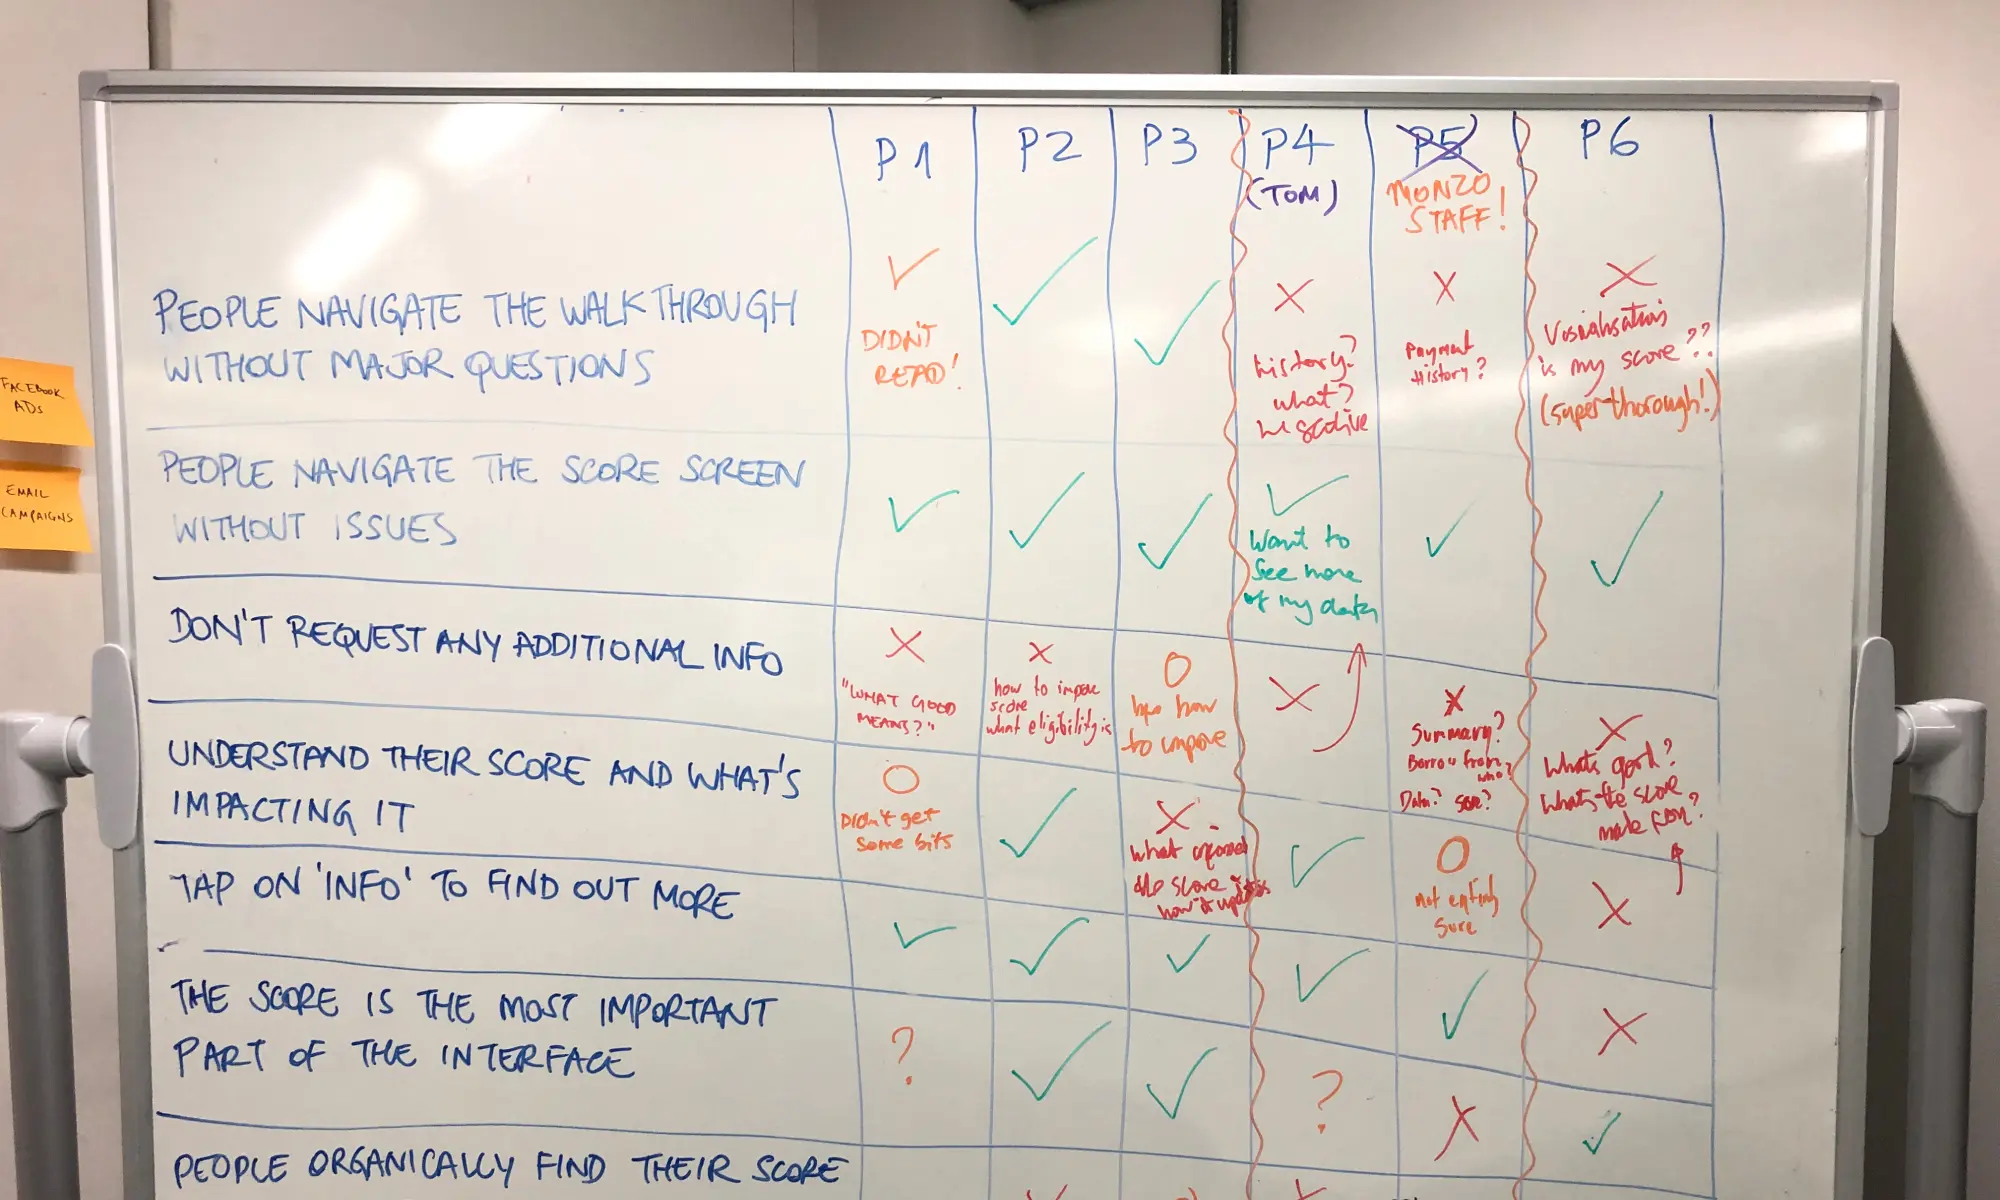 P1 P2 P3 P4 P5 P6
(TOM)
MONZO
STAFF!
PEOPLE NAVIGATE THE WALKTHROUGH
WITHOUT MAJOR QUESTIONS
✓
DIDN'T
READ!
✓
✓
X
history?
what?
X
Payment
History?
X
is my score??
(super thorough!)
PEOPLE NAVIGATE THE SCORE SCREEN
WITHOUT ISSUES
✓
✓
✓
✓
Want to
See more
of my data
✓
✓
DON'T REQUEST ANY ADDITIONAL INFO
X
"WHAT GOOD
MEANS?"
X
how to
score
what eligibility is
O
how
to
X
X
Summary?
Borrow from
who?
Data?
X
What's good?
What's the score
made from?
UNDERSTAND THEIR SCORE AND WHAT'S
IMPACTING IT
O
Didn't get
Some bits
✓
X
What
the score
✓
O
not entirely
Sure
X
TAP ON 'INFO' TO FIND OUT MORE
✓
✓
✓
✓
✓
X
THE SCORE IS THE MOST IMPORTANT
PART OF THE INTERFACE
?
✓
✓
?
X
✓
PEOPLE ORGANICALLY FIND THEIR SCORE
FACEBOOK
ADs
EMAIL
CAMPAIGNS